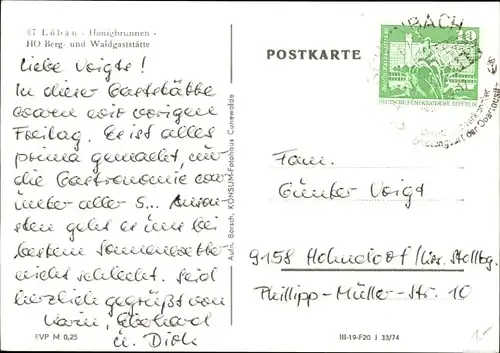 87 Löbau - Honigbrunnen -
HO Berg- und Waldgaststätte
Liebe Voigts!
In dieser Gaststätte
waren wir vorigen
Freitag. Es ist alles
prima gemacht, nur
die Gastronomie war
unter aller S... Anson-
sten geht es uns bei
bestem Sonnenwetter
nicht schlecht. Seid
herzlich gegrüßt von
Karin, Eberhard
u. Dirk
EVP M 0,25
Aufn. Borsch, KONSUM-Fotohaus Cunewalde
POSTKARTE
BACH
DEUTSCHE DEMOKRATISCHE REPUBLIK
der Oberlausitz
Fam.
Günter Voigt
9158 Hohndorf (Krs. Stollbg.
Phillipp-Müller-Str. 10
III-19-F20 J 33/74